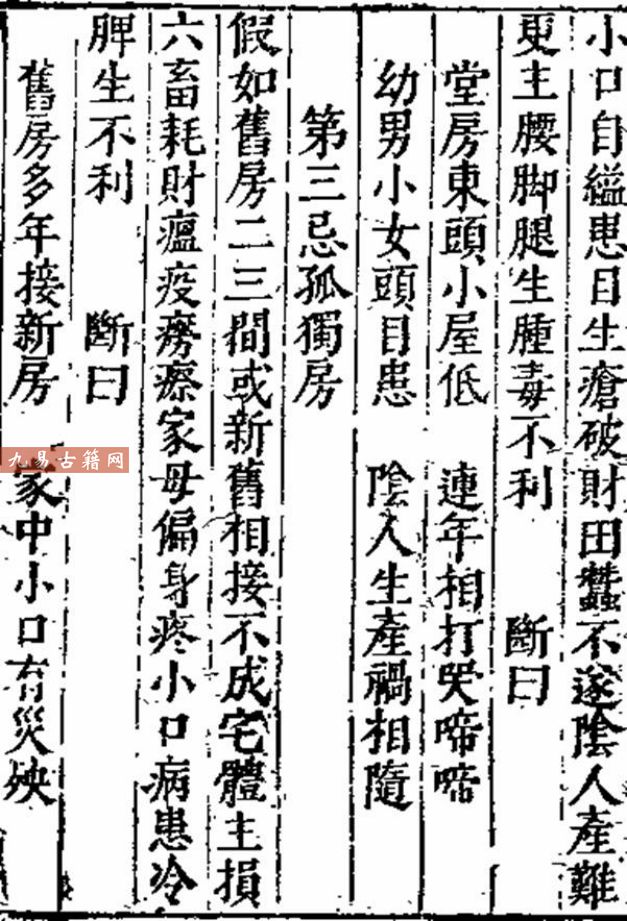 小口自縊患目生瘡破財田蠶不遂陰人產難
更主腰脚腿生腫毒不利　斷曰
堂房東頭小屋低　連年相打哭啼啼
幼男小女頭目患　陰人生產禍相隨
第三忌孤獨房
假如舊房二三間或新舊相接不成宅體主損
六畜耗財瘟疫癆瘵家母偏身疼小口病患冷
脾生不利　斷曰
舊房多年接新房　家中小口有災殃
九易古籍网